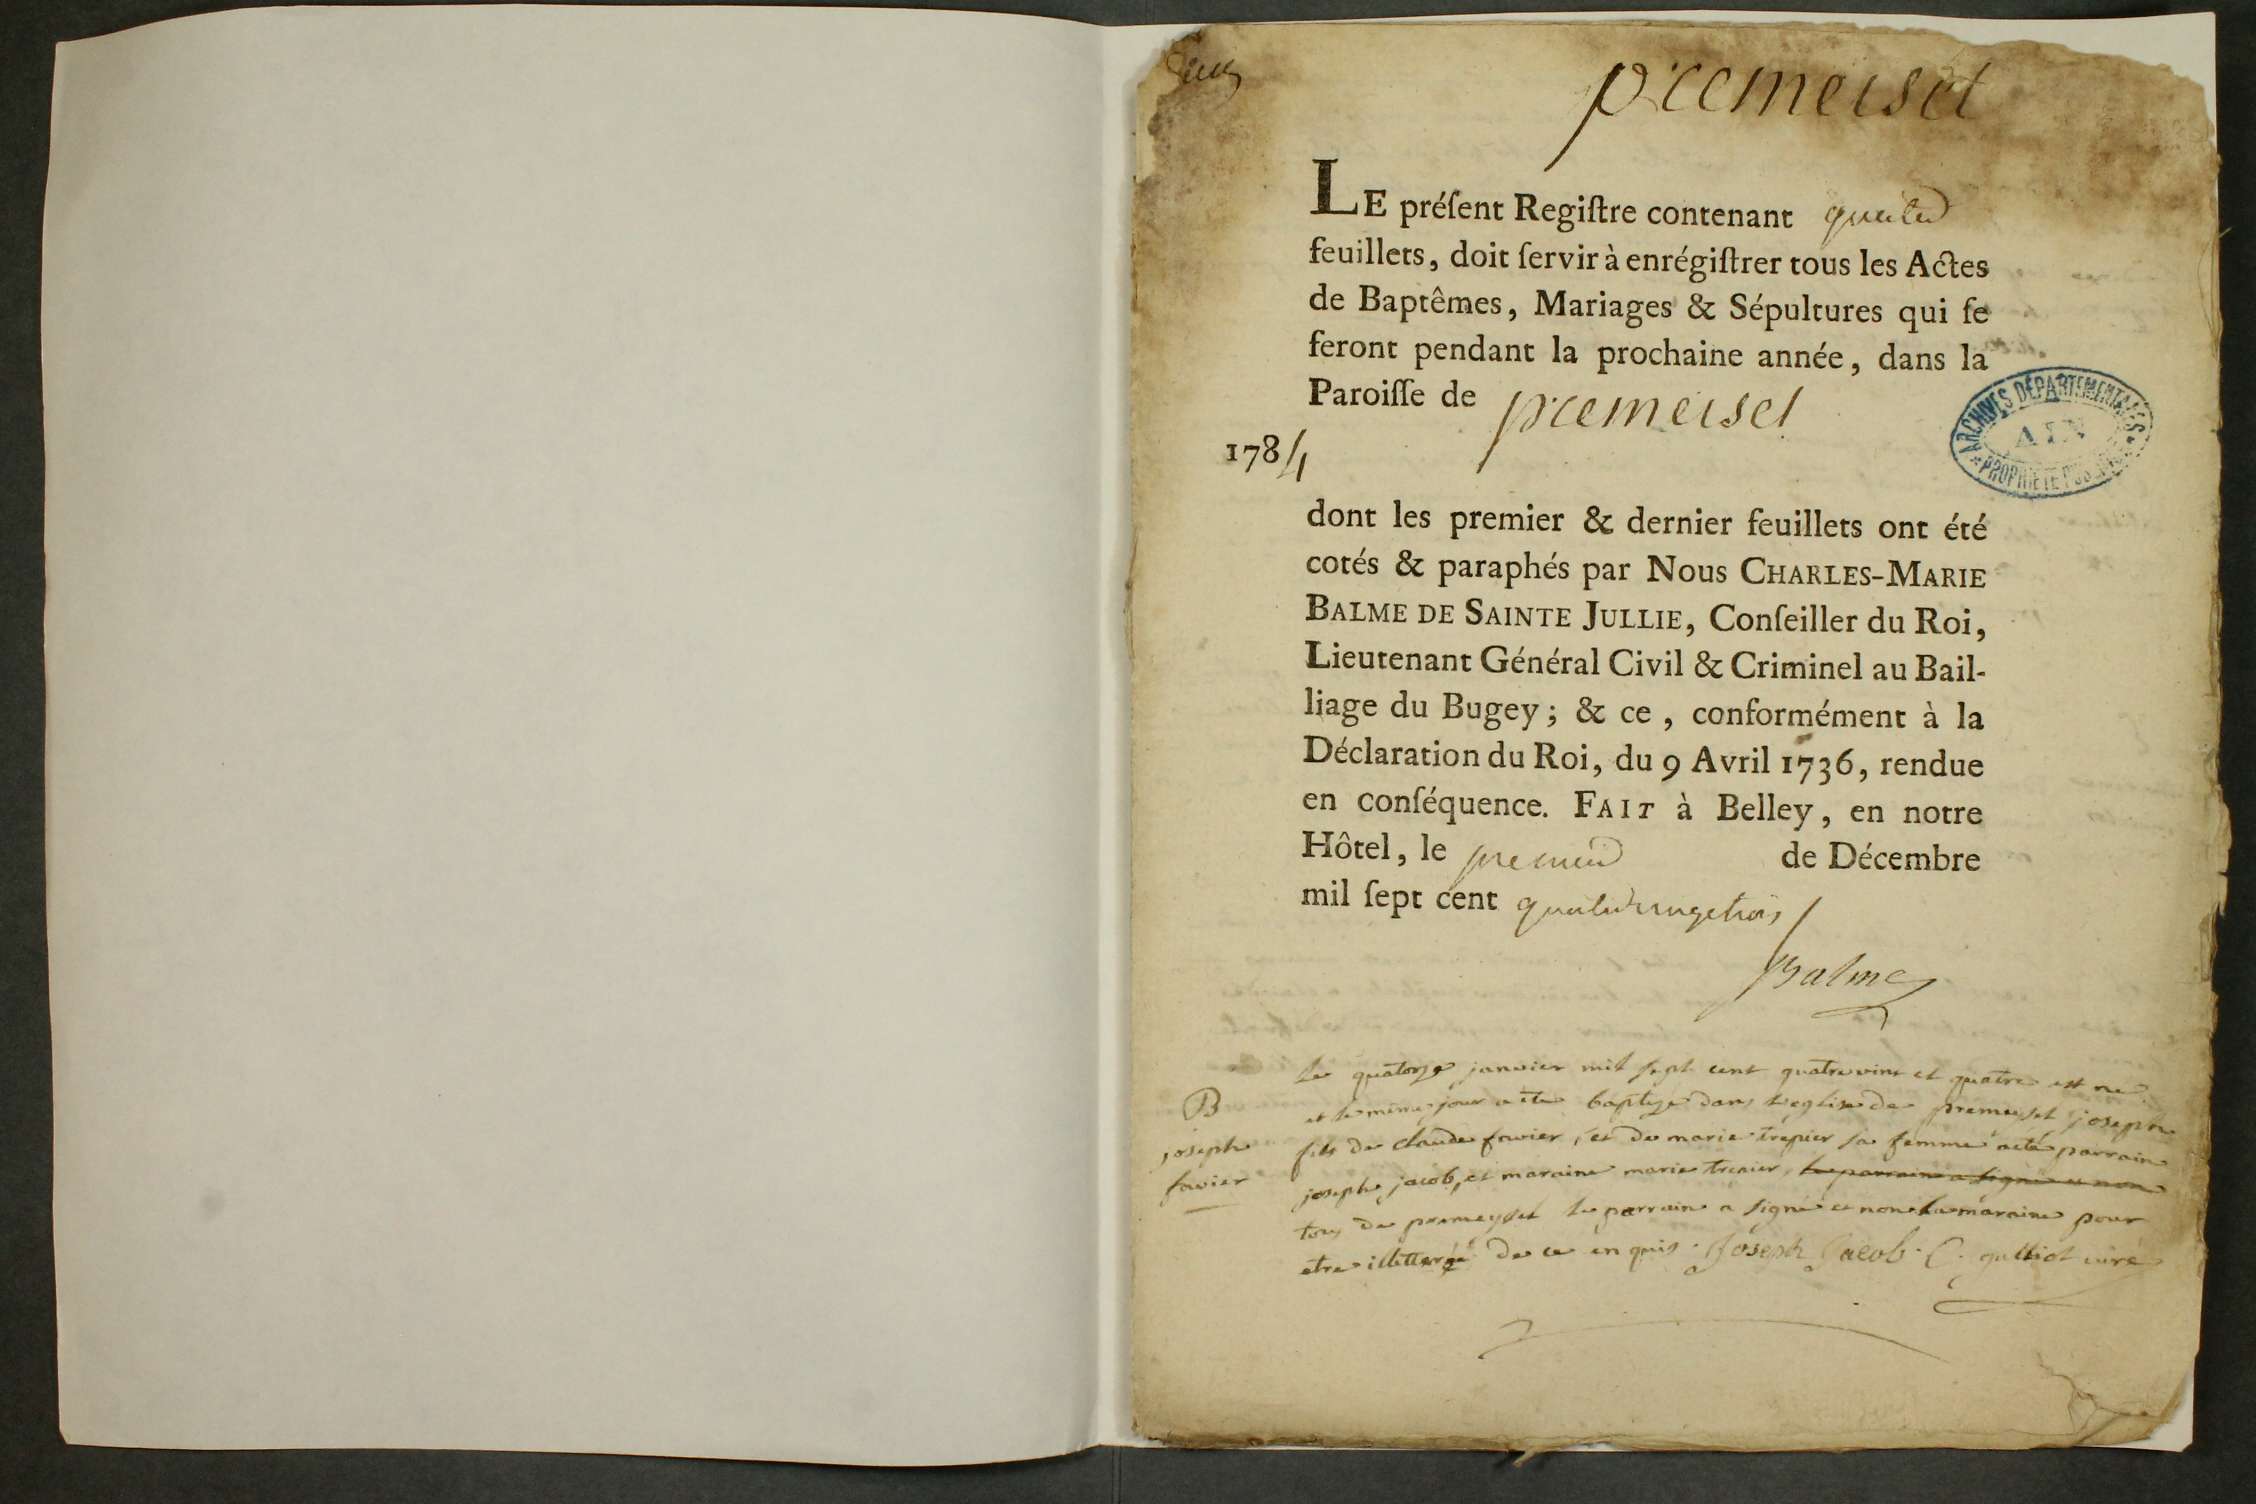 premeiset
LE préſent Regiſtre contenant quatre
feuillets, doit ſervir à enrégiſtrer tous les Actes
de Baptêmes, Mariages & Sépultures qui ſe
feront pendant la prochaine année, dans la
Paroiſſe de premeisel
1784
ARCHIVES DÉPARTEMENTALES
AIN
PROPRIÉTÉ PUBLIQUE
dont les premier & dernier feuillets ont été
cotés & paraphés par Nous CHARLES-MARIE
BALME DE SAINTE JULLIE, Conſeiller du Roi,
Lieutenant Général Civil & Criminel au Bail-
liage du Bugey; & ce, conformément à la
Déclaration du Roi, du 9 Avril 1736, rendue
en conſéquence. FAIT à Belley, en notre
Hôtel, le premier de Décembre
mil ſept cent quatrevingtrois
Balme
B
joseph
favier
Le quatorze janvier mil sept cent quatrevint et quatre est né
et le même jour a été baptizé dans l'eglise de premeysel joseph
fils de claude favier, et de marie trepier sa femme a été parrain
joseph jacob, et maraine marie trepier, le parrain a signé et non
tous de premeysel le parrain a signé et non la maraine pour
etre illetteré de ce enquis. Joseph Jacob. C. gulliot curé